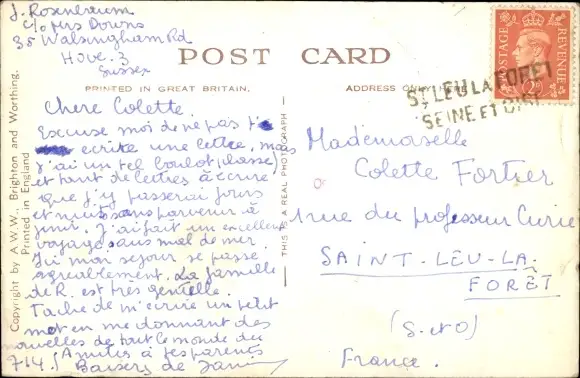 J. Rosenbaum
c/o Mrs Downs
35 Walsingham Rd
Hove. 3
Sussex
POST CARD
PRINTED IN GREAT BRITAIN.
ADDRESS ONLY HERE
POSTAGE
REVENUE
ST LEU LA FORET
SEINE ET OISE
Copyright by A.W.W., Brighton and Worthing.
Printed in England
THIS IS A REAL PHOTOGRAPH
Chere Colette.
Excuse moi de ne pas t'
écrire une lettre, mais
j'ai un tel boulot (classe)
et tant de lettres à écrire
que j'y passerai jours
et nuits sans parvenir à
finir. J'ai fait un excellent
voyage sans mal de mer.
Ici mon sejour se passe
agreablement. La famille
de R. est très gentille.
Tache de m'écrire un petit
mot en me donnant des
nouvelles de tout le monde du
714. Amitiés à tes parents
Baisers de
Mademoiselle
Colette Fortier
1 rue du professeur Curie
SAINT-LEU-LA-
FORÊT
(S-et-O)
France.